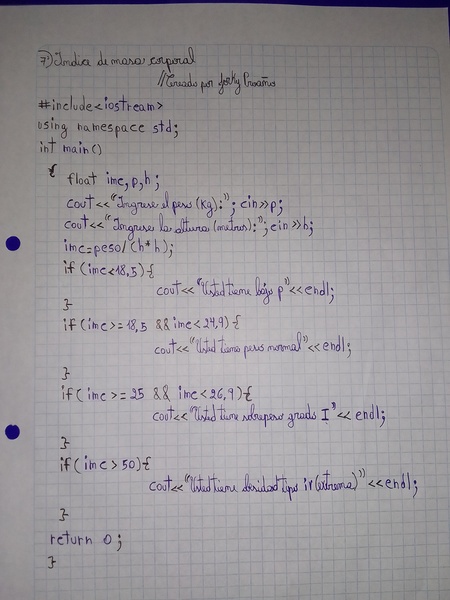 7) Indice de masa corporal
//Creado por Jorky Proaño
#include<iostream>
using namespace std;
int main()
{ float imc,p,h;
cout<<"Ingrese el peso (Kg):"; cin>>p;
cout<<"Ingrese la altura (metros):"; cin>>h;
imc=peso/(h*h);
if (imc<18,5){
cout<<"Usted tiene bajo p"<<endl;
}
if (imc>=18,5 && imc<24,9){
cout<<"Usted tiene peso normal"<<endl;
}
if (imc >= 25 && imc<26,9){
cout<<"Usted tiene sobrepeso grado I"<< endl;
}
if (imc > 50){
cout<<"Usted tiene obesidad tipo iv (extrema)"<<endl;
}
return 0;
}